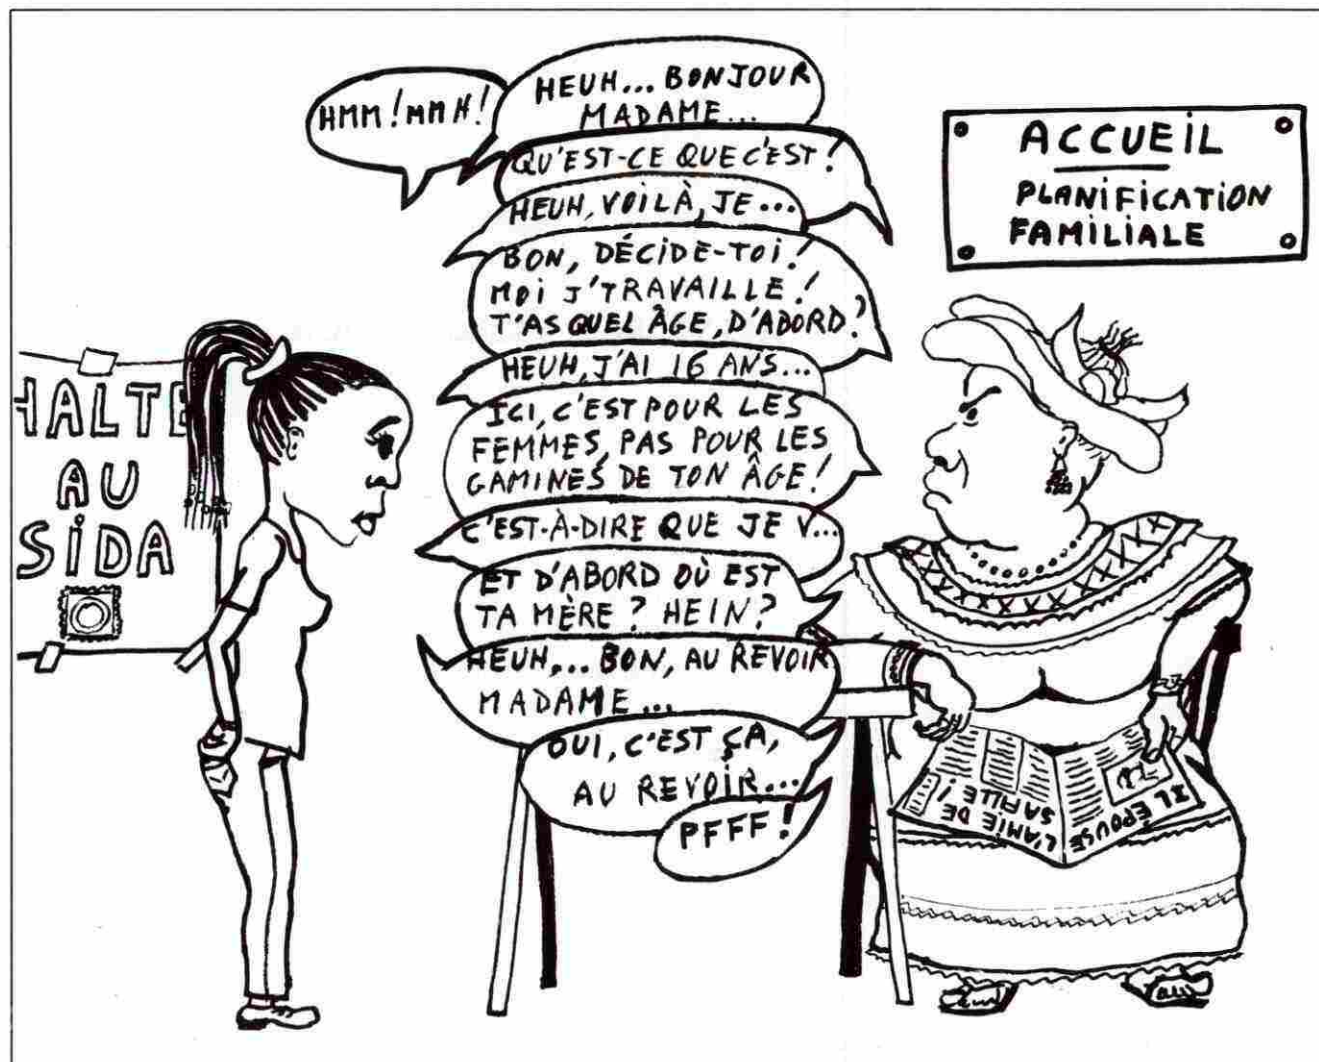 HMM! MMH!
HEUH... BONJOUR
MADAME...
QU'EST-CE QUE C'EST!
HEUH, VOILÀ, JE...
BON, DÉCIDE-TOI!
MOI J'TRAVAILLE!
T'AS QUEL ÂGE, D'ABORD?
HEUH, J'AI 16 ANS...
ICI, C'EST POUR LES
FEMMES, PAS POUR LES
GAMINES DE TON ÂGE!
C'EST-À-DIRE QUE JE V...
ET D'ABORD OÙ EST
TA MÈRE? HEIN?
HEUH,... BON, AU REVOIR
MADAME...
OUI, C'EST ÇA,
AU REVOIR...
PFFF!
ACCUEIL
PLANIFICATION
FAMILIALE
HALTE
AU
SIDA
IL ÉPOUSE
L'AMIE DE
SA FILLE!